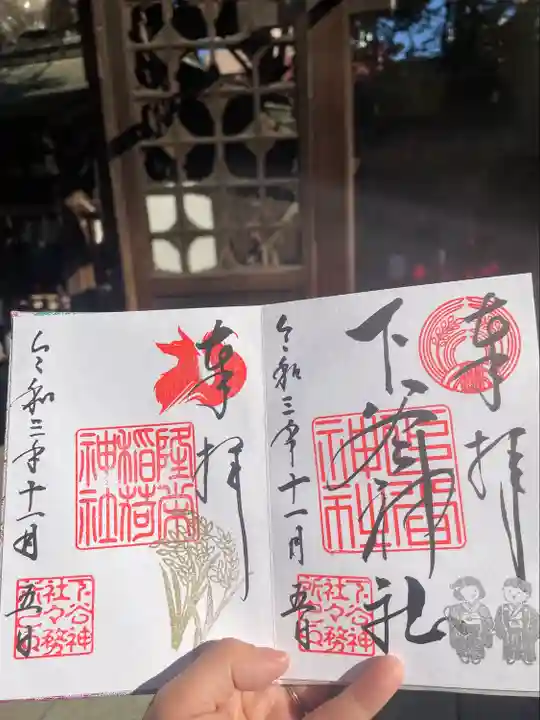 奉拝
下谷神社
令和三年十一月五日
下谷神
社々務
所之印
奉拝
令和三年十一月五日
稲荷
神社
下谷神
社々務
所之印